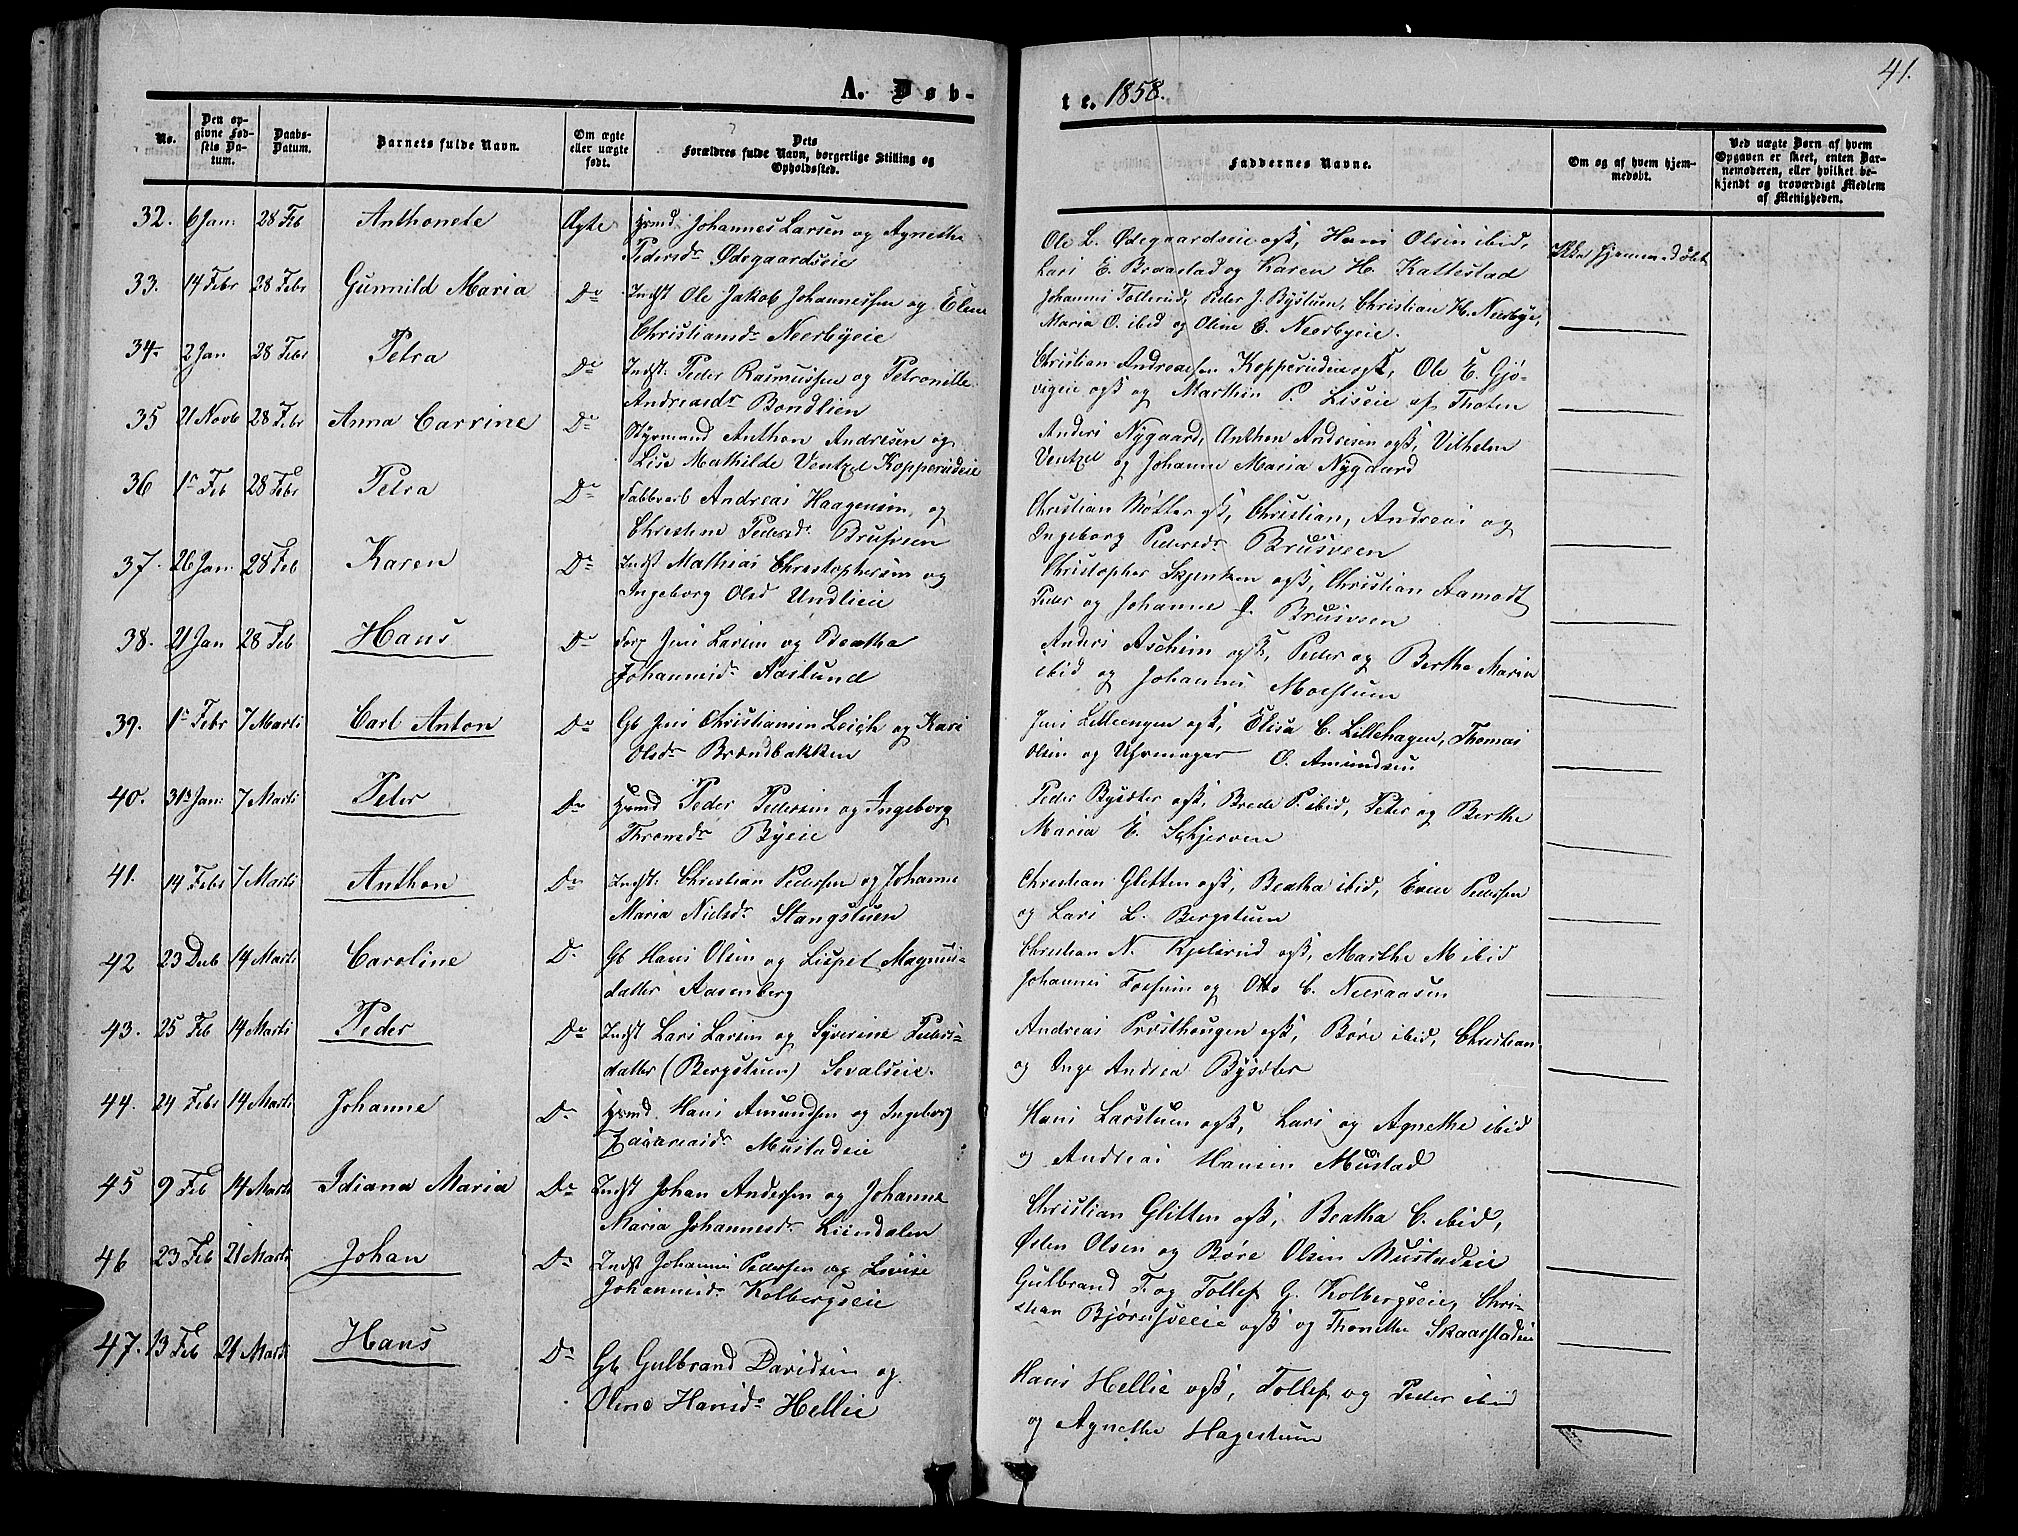 A. Døb-
te. 1858.
41.
No.
Den op-
givne Fød-
sels Da-
tum.
Daabs-
Datum.
Barnets fulde Navn.
Om ægte
eller uægte
født.
Dets
Forældres fulde Navn, borgerlige Stilling og
Opholdssted.
Faddernes Navne.
Om og af hvem hjem-
medøbt.
Ved uægte Børn af hvem
Opgaven er skeet, enten Bar-
nemoderen, eller hvilket be-
kjendt og troværdigt Medlem
af Menigheden.
32. 6 Jan: 28 Feb Anthonete Ægte Hrmd Johannes Larsen og Agnethe
Pedersdr Ødegaardseie
Ole L. Ødegaardseie ogsk, Hans Olsen ibid,
Lars E. Braastad og Karen H. Kattestad
Ikke hjemmedøbt
33. 14 Febr 28 Febr Gunnild Maria Do Indst Ole Jakob Johannessen og Elene
Christiansdr Neerbyeie
Johannes Tollerud, Peder J. Bystuen, Christian H. Neerbye,
Maria O. ibid og Oline C. Neerbyeie.
34. 2 Jan 28 Febr Petra Do Indst: Peder Rasmussen og Petronille
Andreasdr Bondlien
Christian Andreassen Kopperudeie ogsk, Ole E. Gjø-
vigeie ogsk og Marthin P. Liseie af Thoten
35 21 Novb 28 Febr Anna Carrine Do Styrmand Anthon Andresen og
Lise Mathilde Ventzel Kopperudeie
Anders Nygaard, Anthon Andresen ogsk, Vilhelm
Ventzel og Johanne Maria Nygaard
36 1r Feb 28 Febr Petra Do Fabbrarb Andreas Haagensen og
Christine Pedersdr Brusveen
Christian ogsk, Christian, Andreas og
Ingeborg Pedersdr Brusveen
37. 26 Jan: 28 Feb Karen Do Indst Mathias Christophersen og
Ingeborg Olsd Undlieie
Christopher Skjenken ogsk, Christian Aamodt
Peder og Johanne J. Brusveen
38. 21 Jan 28 Feb Hans Do Forp Jens Larsen og Beatha
Johannesdr Aaslund
Anders Aschim ogsk, Peder og Berthe Maria
ibid og Johannes Moestuen
39. 1r Febr 7 Marts Carl Anton Do Gb Jens Christiansen Leigh og Kari
Olsdr Brændbakken
Jens Lilleengen ogsk, Elisa C. Lillehagen, Thomas
Olsen og Uhrmager O. Amundsen
40. 31s Jan: 7 Marts Peter Do Hrmd Peder Pedersen og Ingeborg
Thronsdr Byeie
Peder Bysæter ogsk, Brede P. ibid, Peter og Berthe
Maria E. Schjerven
41. 14 Febr 7 Marts Anthon Do Indst: Christian Pedersen og Johanne
Maria Nielsdr Stangstuen
Christian Glitten ogsk, Beatha ibid, Even Pedersen
og Lars L. Bergstuen
42 23 Deb 14 Marts Caroline Do Gb Hans Olsen og Lispet Magnus-
datter Aasenberg
Christian N. Kjelsrud ogsk, Marthe M ibid
Johannes Fossum og Otto C. Neeraasen
43. 25 Feb 14 Marts Peder Do Indst Lars Larsen og Syverine Peders-
datter (Bergstuen) Sevalseie.
Andreas Prösthougen ogsk, Børe ibid, Christian
og Inge Andrea Bysæter
44. 24 Febr 14 Marts Johanne Do Hrmd Hans Amundsen og Ingeborg
Zacariasdr Mustadeie
Hans Larstuen ogsk, Lars og Agnethe ibid
og Andreas Hansen Mustad
45 9 Feb 14 Marts Idiana Maria Do Indst Johan Andersen og Johanne
Maria Johannesdr Liindalen
Christian Glitten ogsk, Beatha C. ibid,
Østen Olsen og Børe Olsen Mustadeie
46 23 Feb 21 Marts Johan Do Indst Johannes Pedersen og Lovise
Johannesdr Kolbergseie
Gulbrand T. og Tollef G. Kolbergseie, Chri-
stian Bjørnsveeie ogsk og Thonette Skaarstadeie
47. 13 Feb 21 Marts Hans Do Gb Gulbrand Davidsen og
Oline Hansdr Hellie
Hans Hellie ogsk, Tollef og Peder ibid
og Agnethe Hagestuen